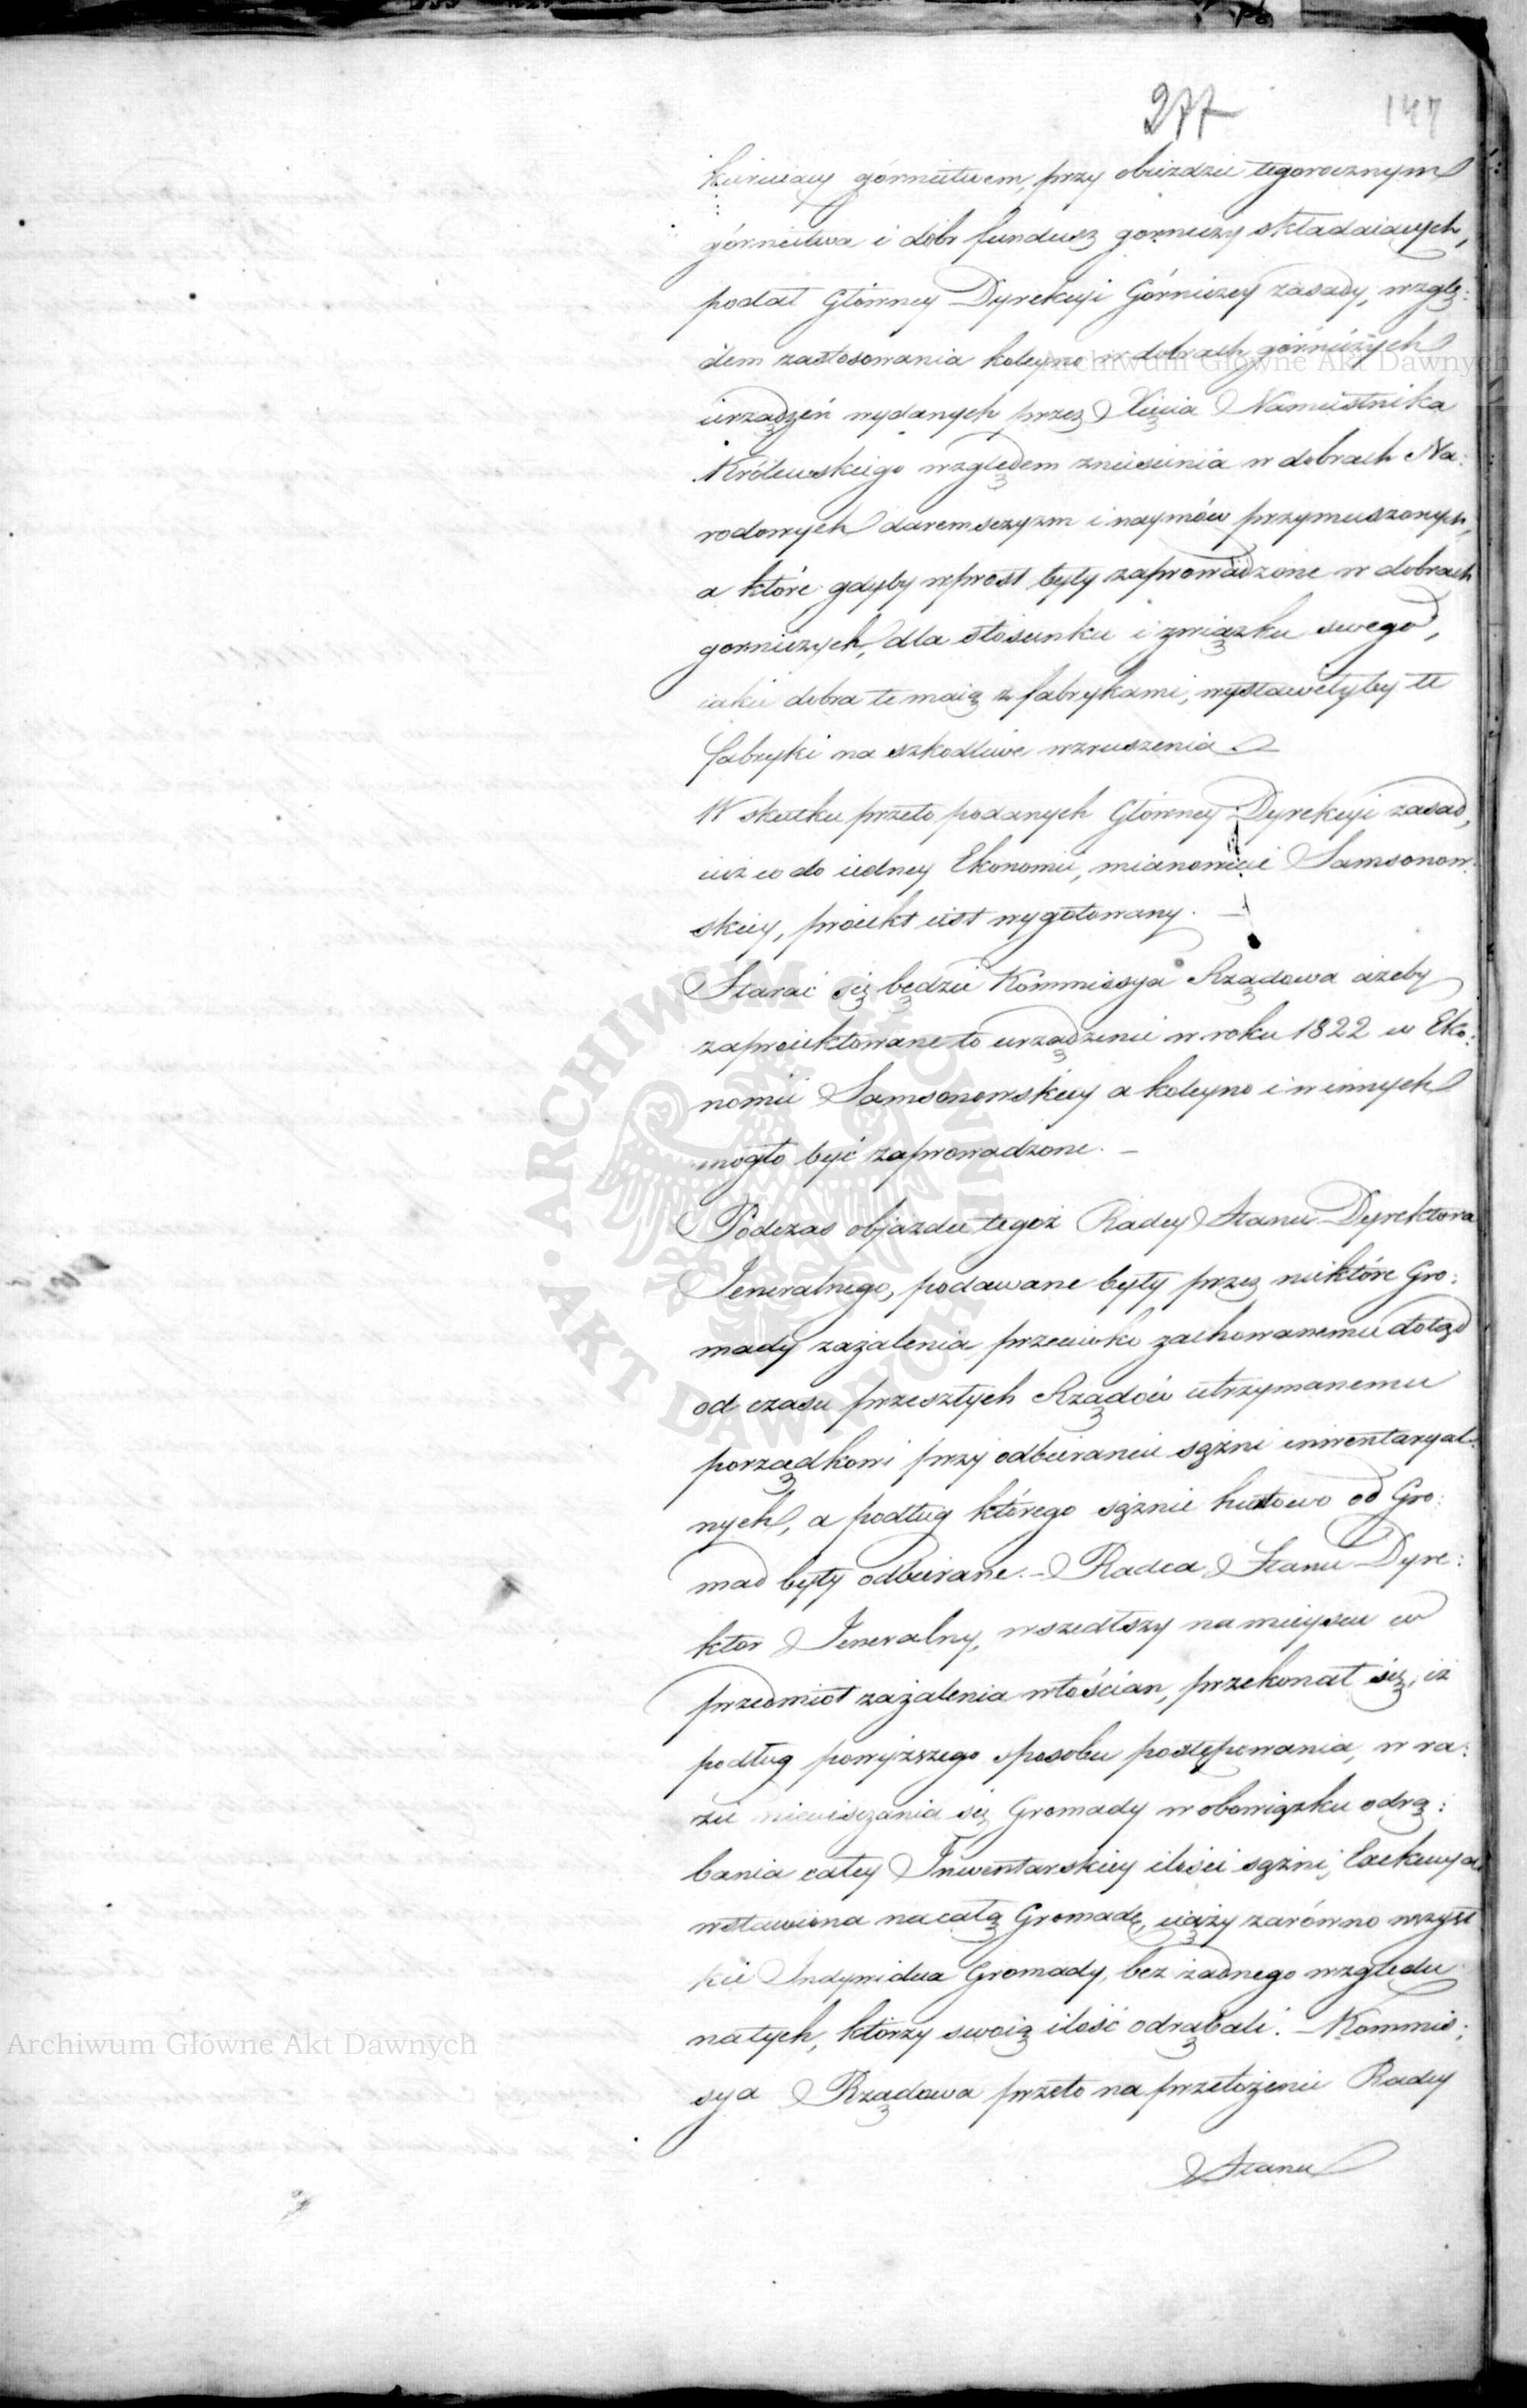 277
147
kieruiący górnictwem, przy obieździe tegorocznym
górnictwa i dóbr fundusz gorniczy składaiących,
podał Główney Dyrekcyi Górniczey zasady, wzglę:
dem zastosowania koleyno w dobrach górniczych
urządzeń wydanych przez Xięcia Namiestnika
Królewskiego względem zniesienia w dobrach Na:
rodowych daremszczyzm i naymów przymuszonych,
a które gdyby wprost były zaprowadzone w dobrach
gorniczych, dla stosunku i związku swego,
iakie dobra te maią z fabrykami, wystawiłyby te
fabryki na szkodliwe wzruszenia.
W skutku przeto podanych Główney Dyrekcyi zasad,
iuż co do iedney Ekonomii, mianowicie Samsonow:
skiey, proiekt iest wygotowany. —
Starać się będzie Kommissya Rządowa ażeby
zaproiektowane to urządzenie w roku 1822 w Eko:
nomii Samsonowskiey a koleyno i w innych
mogło być zaprowadzone. —
Podczas objazdu tegoż Radcy Stanu Dyrektora
Jeneralnego, podawane były przez niektóre Gro:
mady zażalenia przeciwko zachowanemu dotąd
od czasu przeszłych Rządów utrzymanemu
porządkowi przy odbieraniu sążni inwentaryal:
nych, a podług którego sążnie hurtowo od Gro:
mad były odbierane. — Radca Stanu Dyre:
ktor Jeneralny, wszedłszy na mieyscu w
przedmiot zażalenia włościan, przekonał się, iż
podług powyższego sposobu postępowania, w ra:
zie nieuiszczania się Gromady w obowiązku odrą:
bania całey Inwentarskiey ilości sążni, Exekucya
wstawiona na całą Gromadę, ciąży zarówno wszyst
kie Indywidua Gromady, bez żadnego względu
na tych, którzy swoią ilość odrąbali. — Kommis:
sya Rządowa przeto na przełożenie Radcy
Stanu
Archiwum Główne Akt Dawnych
Archiwum Główne Akt Dawnych
ARCHIWUM GŁÓWNE AKT DAWNYCH